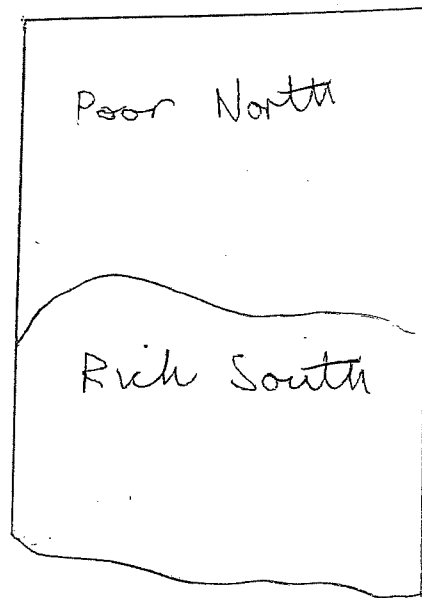 Poor North
Rich South